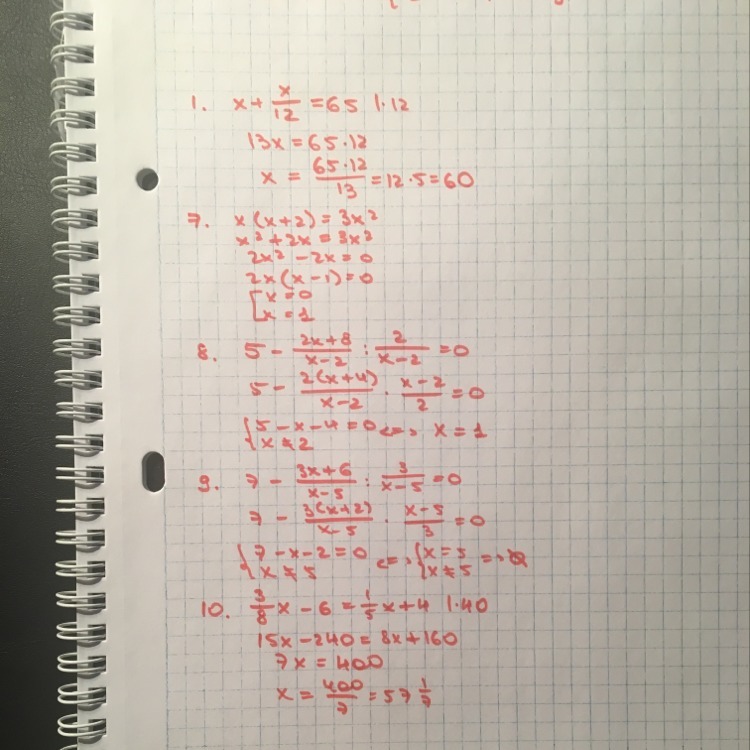 1. x + x/12 = 65 |·12
13x = 65·12
x = 65·12/13 = 12·5 = 60
7. x(x+2) = 3x²
x² + 2x = 3x²
2x² - 2x = 0
2x(x-1) = 0
[x = 0
x = 1
8. 5 - (2x+8)/(x-2) : 2/(x-2) = 0
5 - 2(x+4)/(x-2) · (x-2)/2 = 0
{5 - x - 4 = 0 <=> x = 1
x ≠ 2
9. 7 - (3x+6)/(x-5) : 3/(x-5) = 0
7 - 3(x+2)/(x-5) · (x-5)/3 = 0
{7 - x - 2 = 0 <=> {x = 5 => ∅
x ≠ 5 x ≠ 5
10. 3/8 x - 6 = 1/5 x + 4 |·40
15x - 240 = 8x + 160
7x = 400
x = 400/7 = 57 1/7